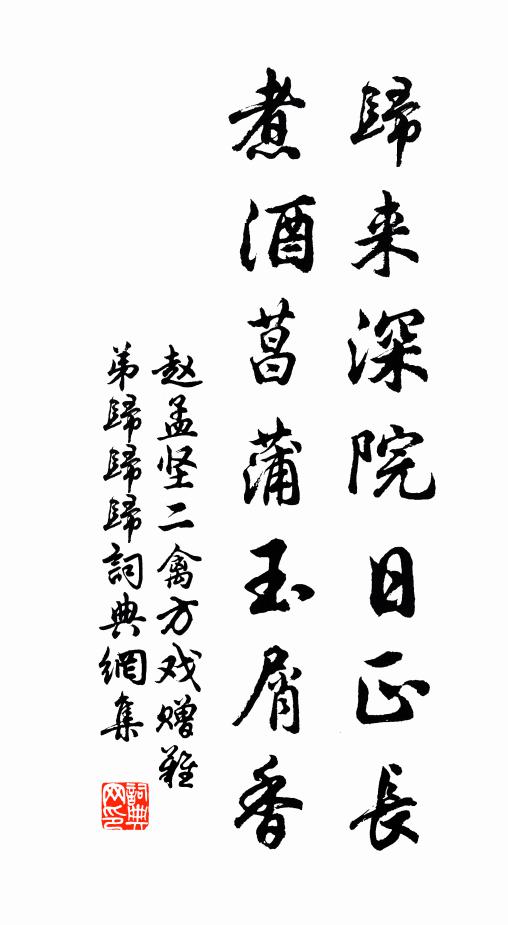 歸来深院日正長
煮酒菖蒲玉屑香
赵孟坚二禽方戏赠難
弟歸歸歸詞典網集
詞典网印